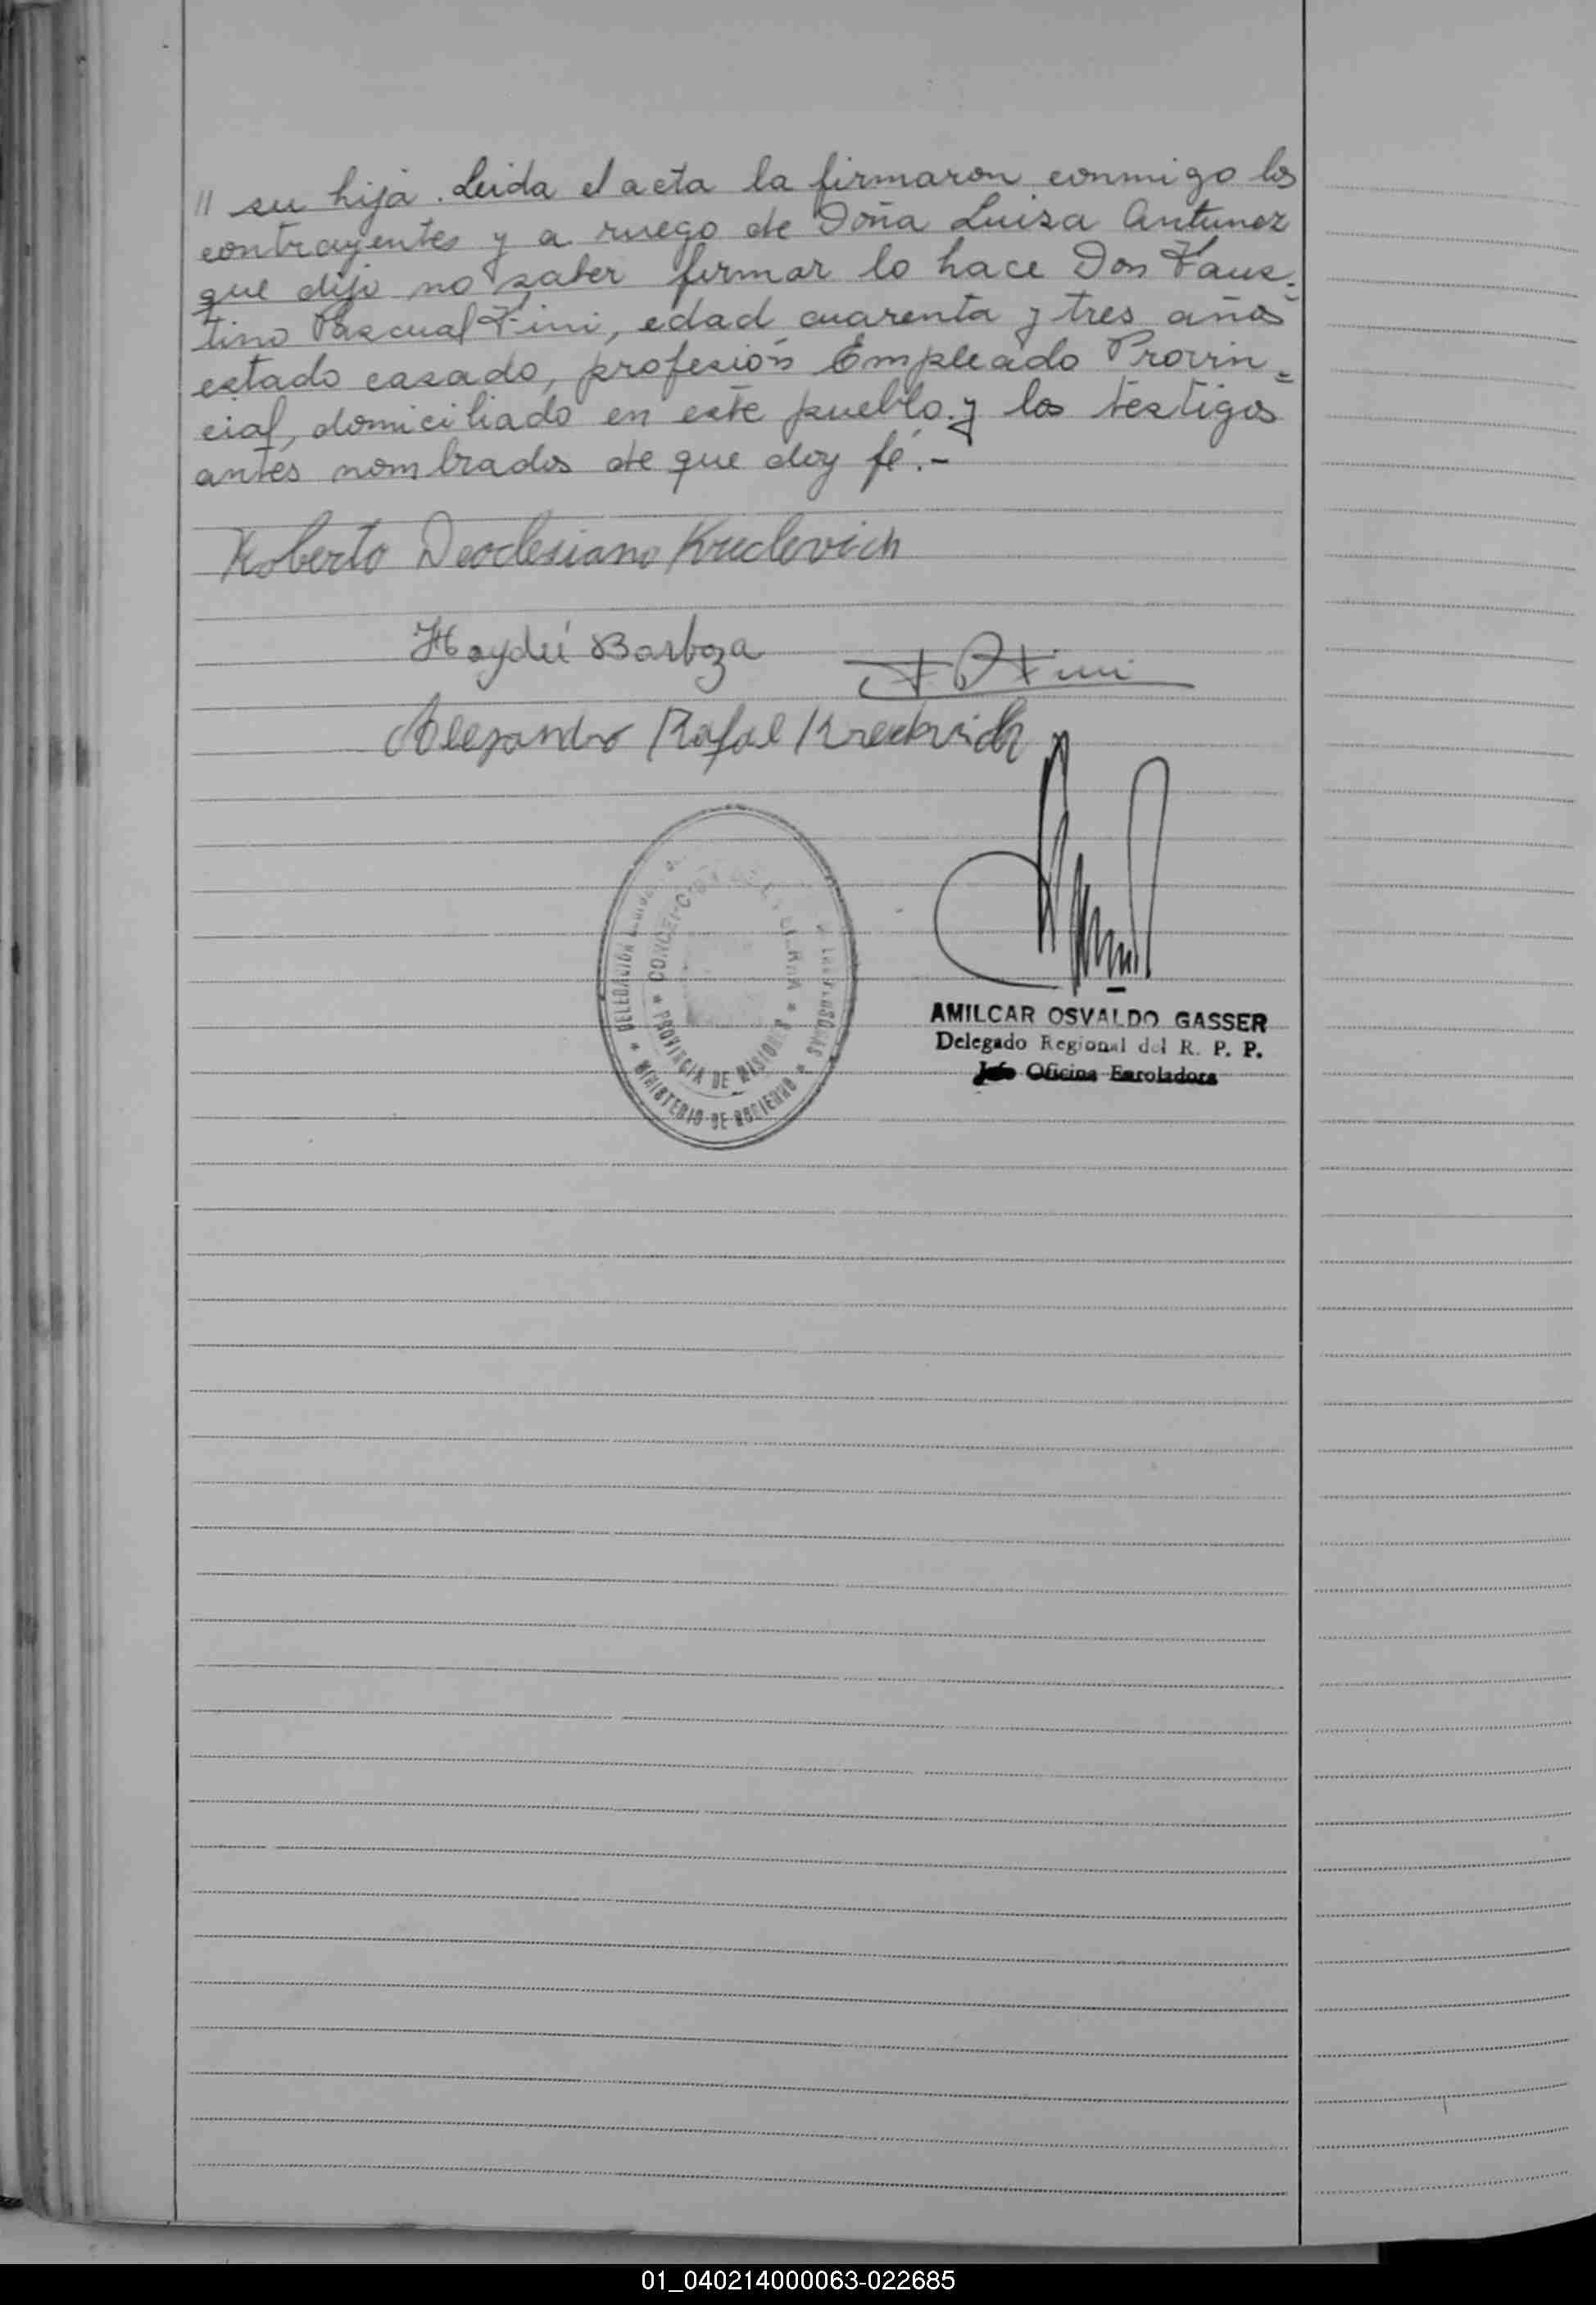 " su hija. Leida el acta la firmaron conmigo los
contrayentes y a ruego de Doña Luisa Antunez
que dijo no saber firmar lo hace Don Faus-
tino Pascual Fini, edad cuarenta y tres años
estado casado, profesión Empleado Provin-
cial, domiciliado en este pueblo y los testigos
antes nombrados de que doy fé.-
Roberto Deoclesiano Kreclevich
Haydeé Barboza
F P Fini
Alejandro Rafael
DELEGACIÓN
PERSONAS
MINISTERIO DE GOBIERNO
CONCEPCION DE LA SIERRA
PROVINCIA DE MISIONES
AMILCAR OSVALDO GASSER
Delegado Regional del R. P. P.
Jefe Oficina Enroladora
01_040214000063-022685